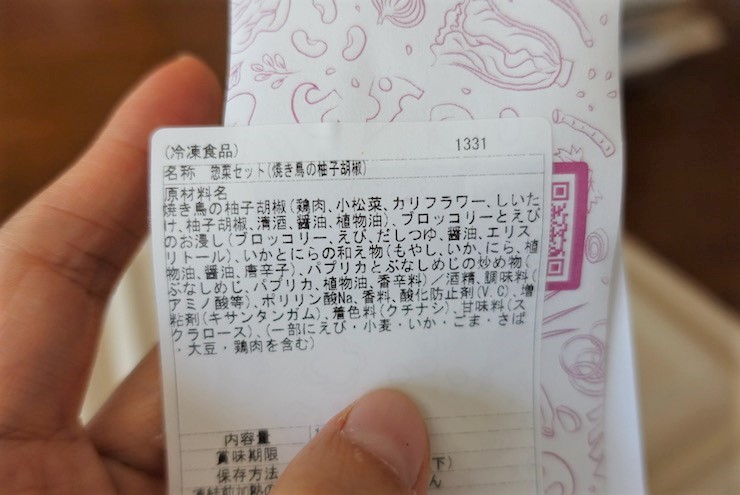 (冷凍食品) 1331
名称 惣菜セット(焼き鳥の柚子胡椒)
原材料名
焼き鳥の柚子胡椒(鶏肉、小松菜、カリフラワー、しいた
け、柚子胡椒、清酒、醤油、植物油)、ブロッコリーとえび
のお浸し(ブロッコリー、えび、だしつゆ、醤油、エリス
リトール)、いかとにらの和え物(もやし、いか、にら、植
物油、醤油、唐辛子)、パプリカとぶなしめじの炒め物(
ぶなしめじ、パプリカ、植物油、香辛料)／酒精、調味料(
アミノ酸等)、ポリリン酸Na、香料、酸化防止剤(V.C)、増
粘剤(キサンタンガム)、着色料(クチナシ)、甘味料(ス
クラロース)、(一部にえび・小麦・いか・ごま・さば
・大豆・鶏肉を含む)
内容量
賞味期限
保存方法 下)
凍結前加熱の ん